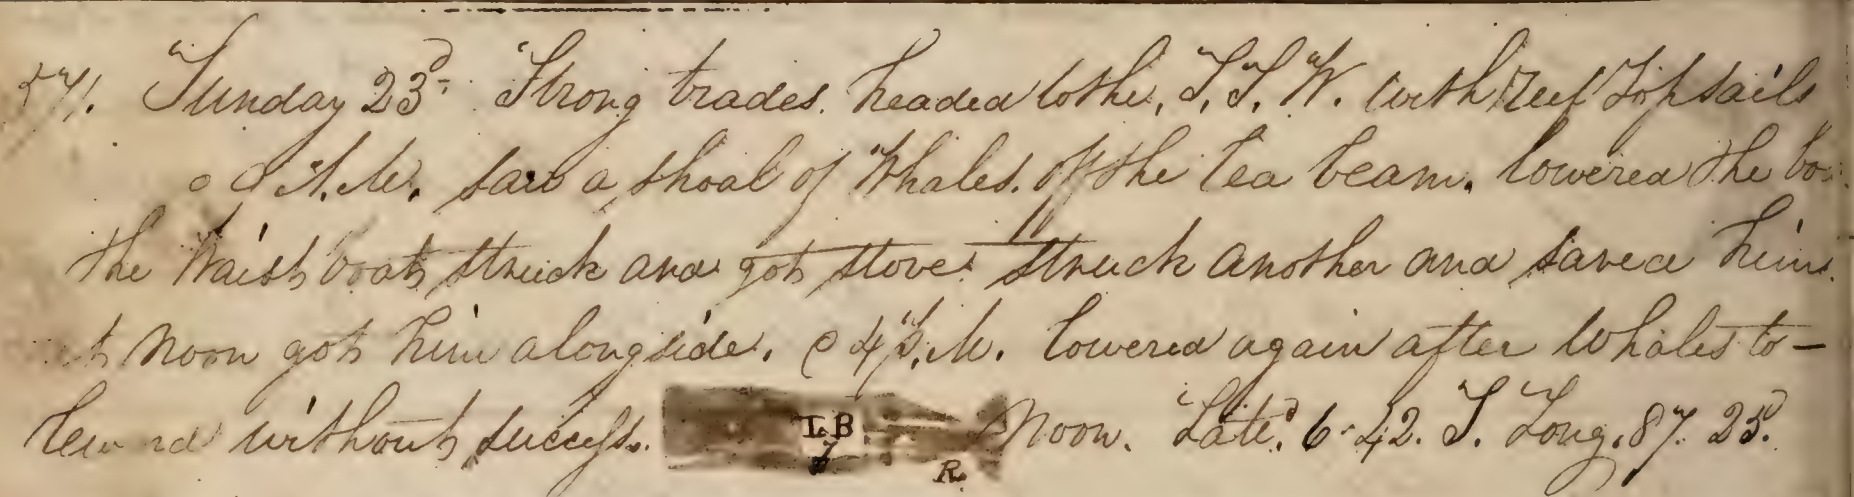 271. Sunday 23d. Strong trades. headed to the, S.S.W. with reef Topsails
@ 9 A.M. saw a shoal of Whales. off the lea beam. lowered the bo
the Waist boat struck and got stove. struck another and saved him.
at noon got him alongside. @ 4 P.M. lowered again after Whales to-
leward without success. I. B 7 R. Noon. Latd. 6-42. S. Long. 87. 23.